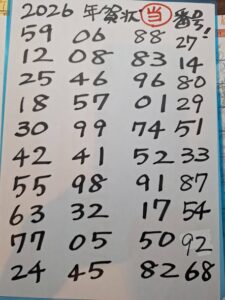 2026 年賀状 当 番号!
59 06 88 27
12 08 83 14
25 46 96 80
18 57 01 29
30 99 74 51
42 41 52 33
55 98 91 87
63 32 17 54
77 05 50 92
24 45 82 68